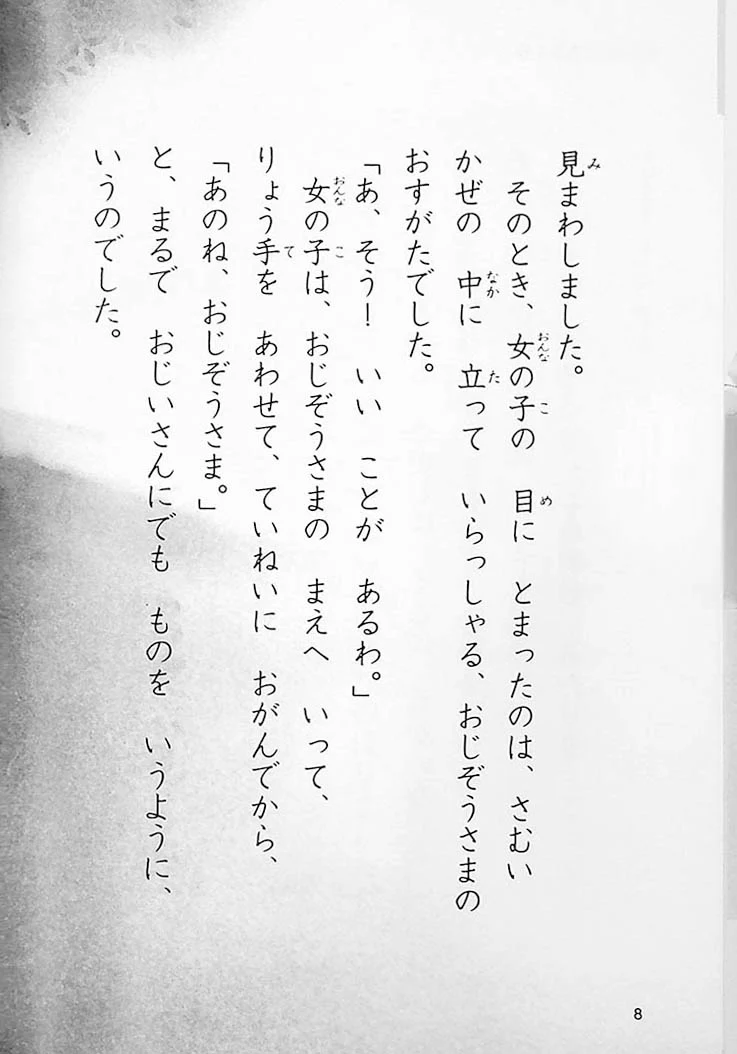 見まわしました。
　そのとき、女の子の　目に　とまったのは、さむい
かぜの　中に　立って　いらっしゃる、おじぞうさまの
おすがたでした。
「あ、そう！　いい　ことが　あるわ。」
　女の子は、おじぞうさまの　まえへ　いって、
りょう手を　あわせて、ていねいに　おがんでから、
「あのね、おじぞうさま。」
と、まるで　おじいさんにでも　ものを　いうように、
いうのでした。
8